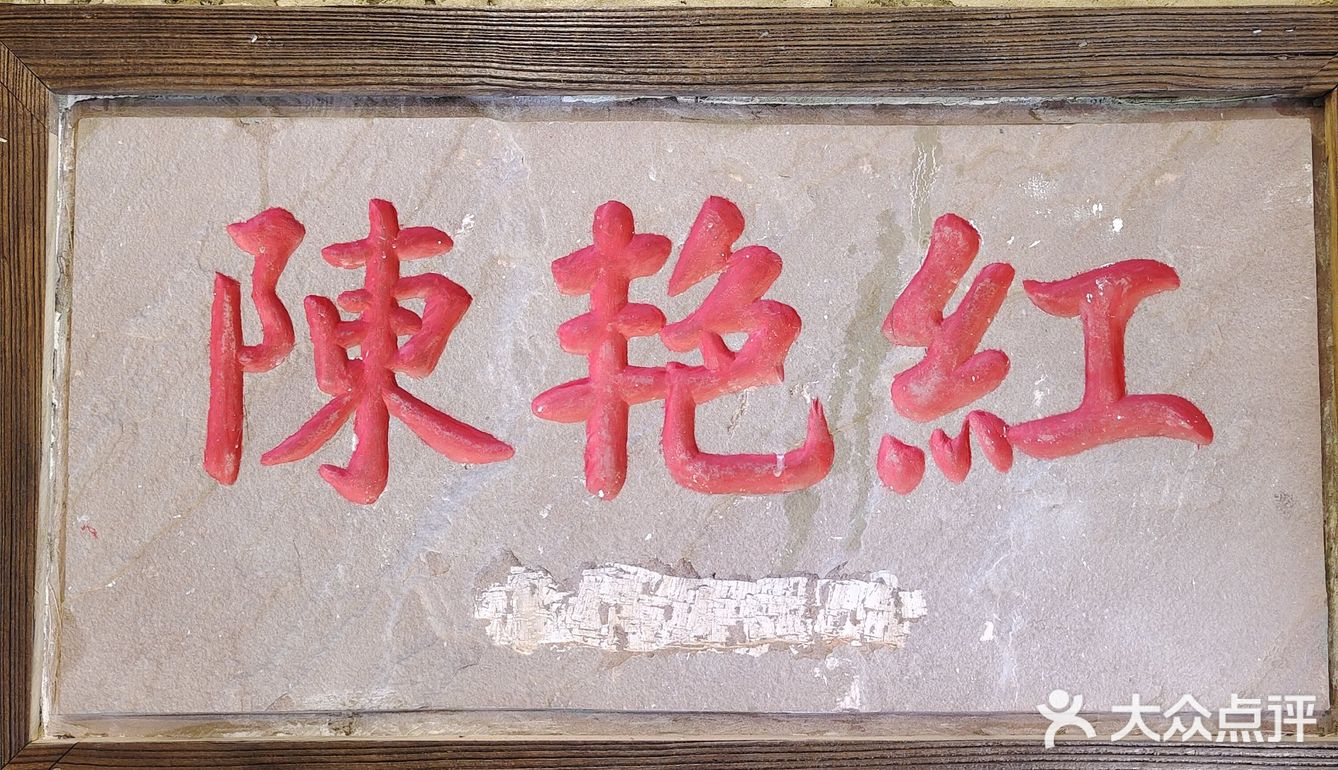 陳艳紅
大众点评